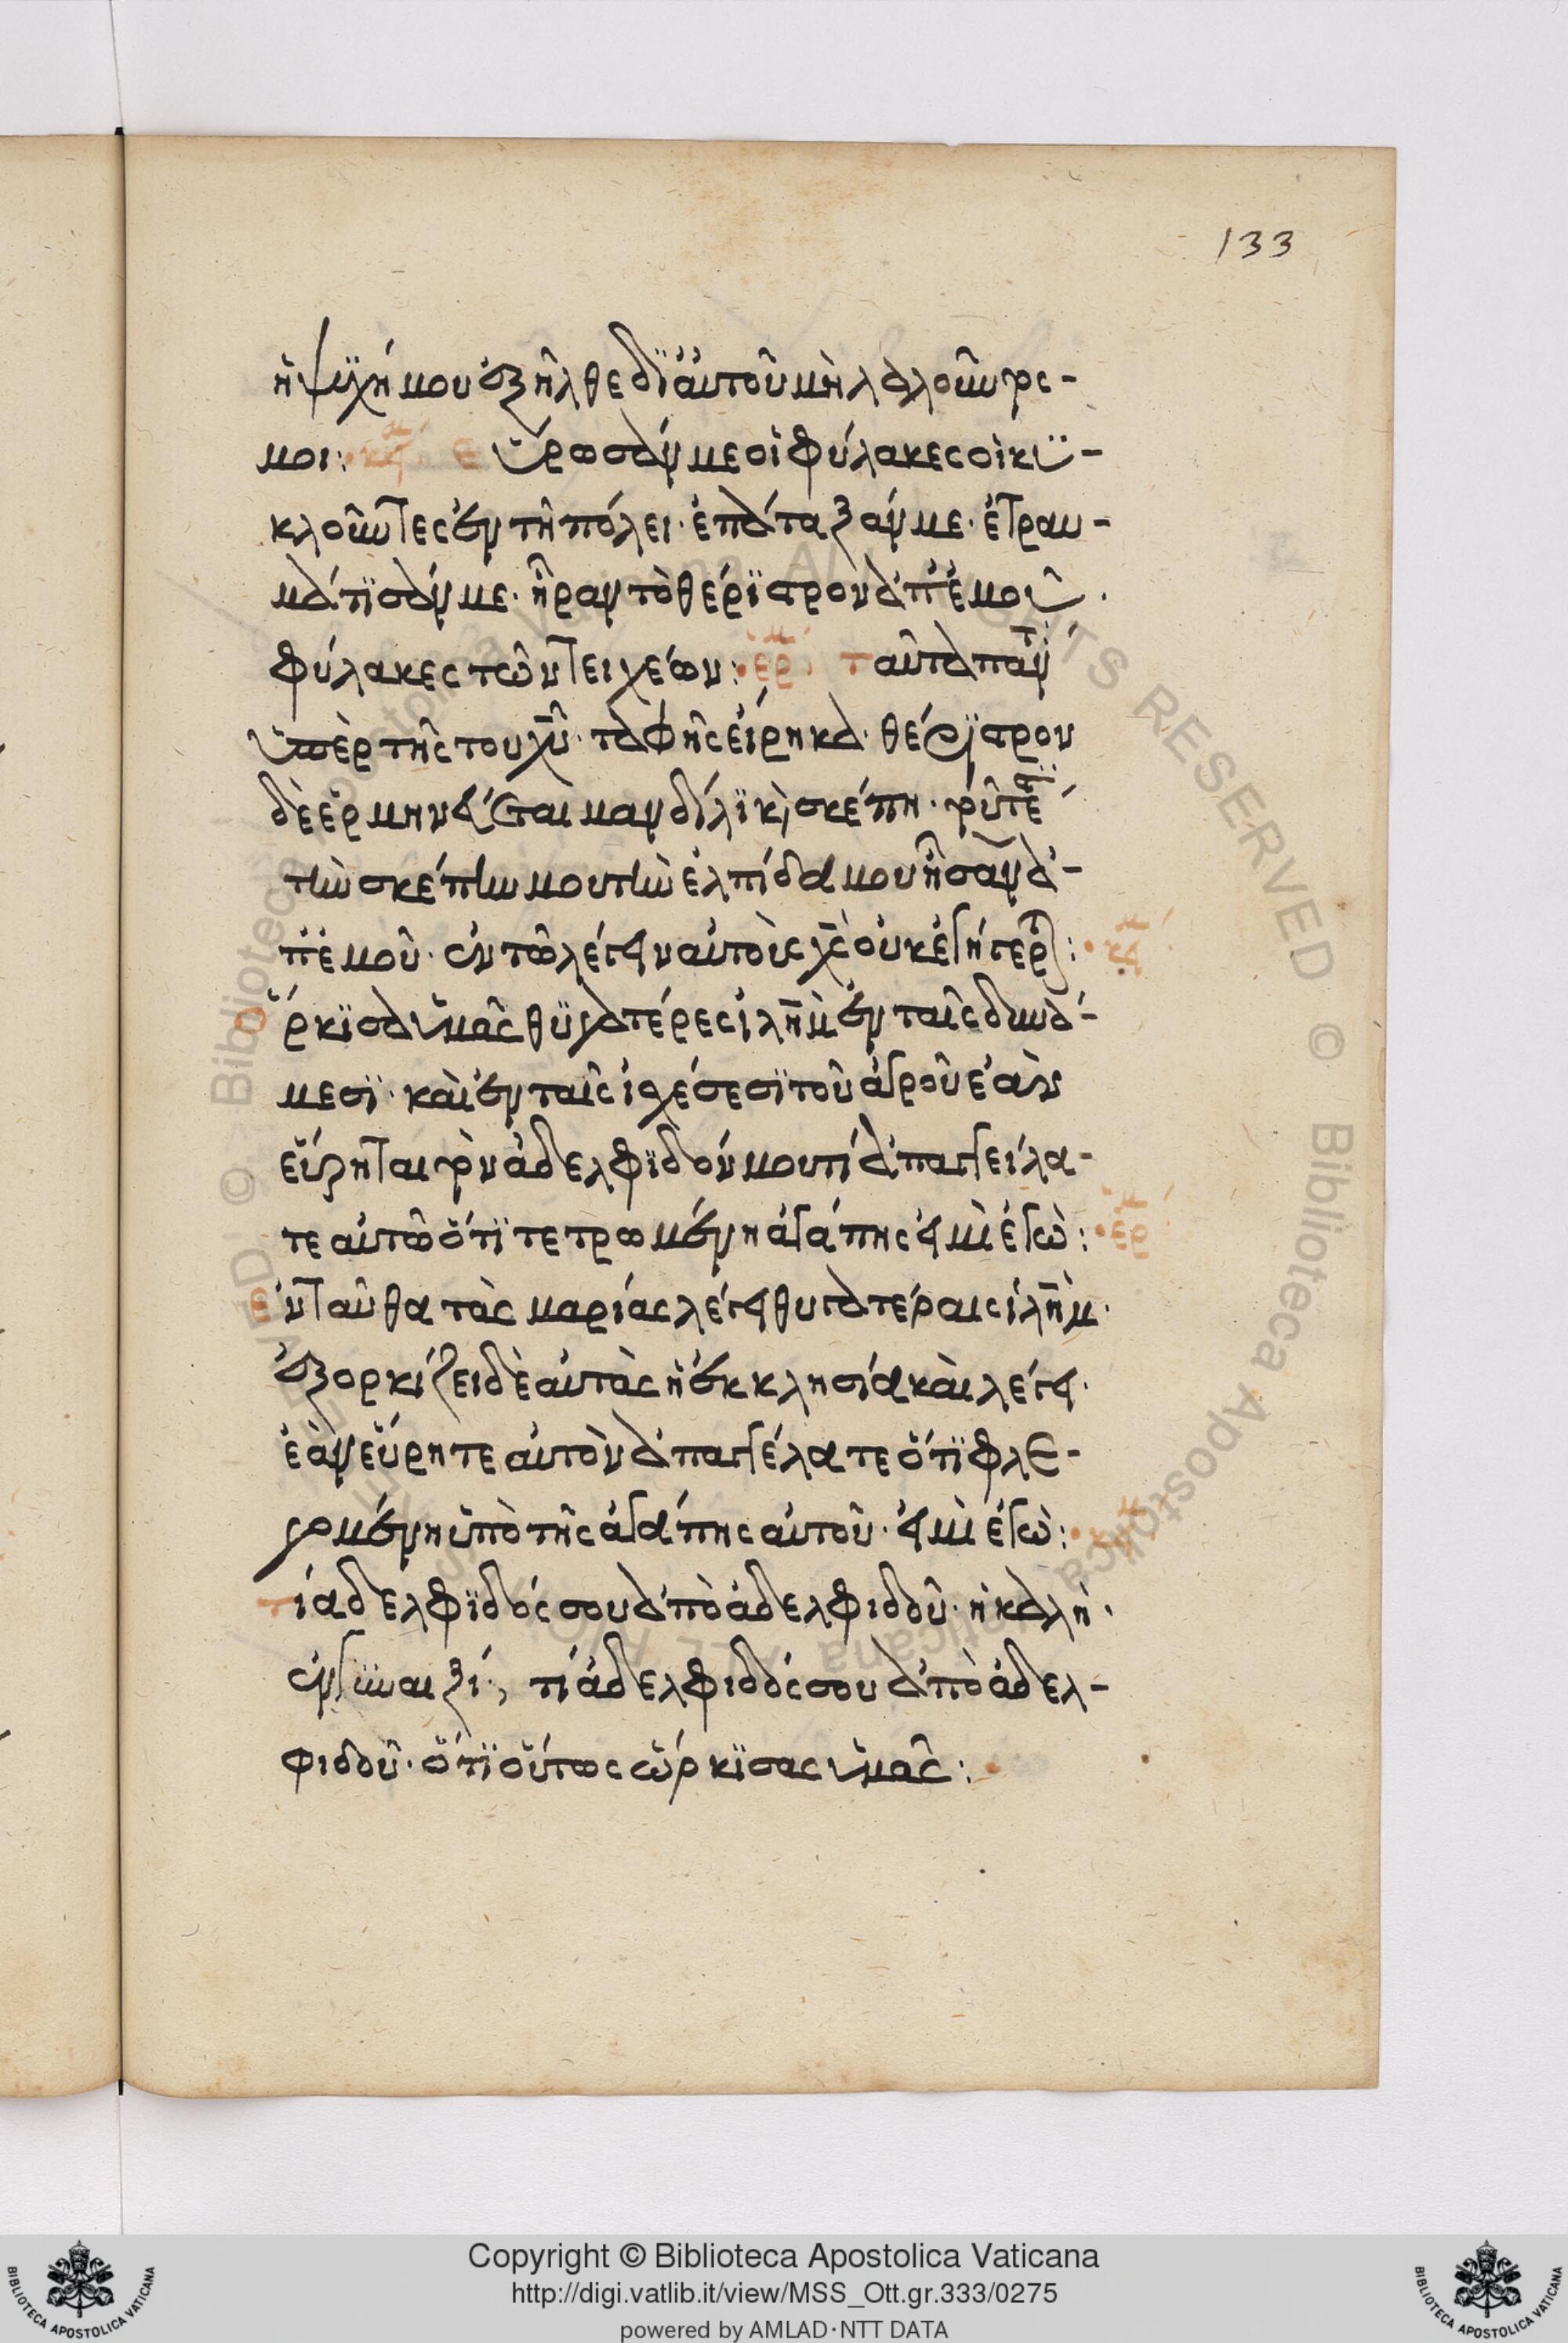 133
ἡ ψυχή μου ἐξῆλθε δι' αὐτοῦ μὴ λαλοῦντος
μοι: κείμ εὕροσάν με οἱ φύλακες οἱ κυ-
κλοῦντες ἐν τῇ πόλει· ἐπάταξάν με· ἐτραυ-
μάτισάν με· ἦραν τὸ θέριστρον ἀπ' ἐμοῦ·
φύλακες τῶν τειχέων: ἑρμ ταῦτα πάντ
ὑπὲρ τῆς του χυ ταφῆς εἴρηκα· θέριστρον
δὲ ἑρμηνεύεται μανδίλι κὶ σκέπη·
τὴν σκέπην μου τὴν ἐλπίδα μου ἦσαν ἀ-
π' ἐμοῦ· ἐν τῶ λέγειν αὐτοὺς χς οὐκ ἐγήγερτ: κείμ
ὅρκισα ὑμᾶς θυγατέρες ιλημ ἐν ταῖς δυνά-
μεσι· καὶ ἐν ταῖς ἰσχέσεσι τοῦ ἀγροῦ ἐὰν
εὕρηται τὸν ἀδελφιδόν μου τί ἀπαγγείλα-
τε αὐτῶ ὅτι τετρωμένη ἀγάπης εἰμὶ ἐγὼ: ἑρμ
ἐνταῦθα τὰς μαρίας λέγει θυγατέραις ιλημ·
ἐξορκίζει δὲ αὐτὰς ἡ ἐκκλησία καὶ λέγει·
ἐὰν εὕρητε αὐτὸν ἀπαγγέλατε ὅτι φλε-
γομένη ὑπὸ τῆς ἀγάπης αὐτοῦ· εἰμὶ ἐγὼ: κείμ
τί ἀδελφιδός σου ἀπὸ ἀδελφιδοῦ· ἡ καλὴ·
ἐν γυναιξί, τί ἀδελφιδός σου ἀπὸ ἀδελ-
φιδοῦ· ὅτι οὕτως ὥρκισας ὑμᾶς:
Copyright © Biblioteca Apostolica Vaticana
http://digi.vatlib.it/view/MSS_Ott.gr.333/0275
powered by AMLAD·NTT DATA